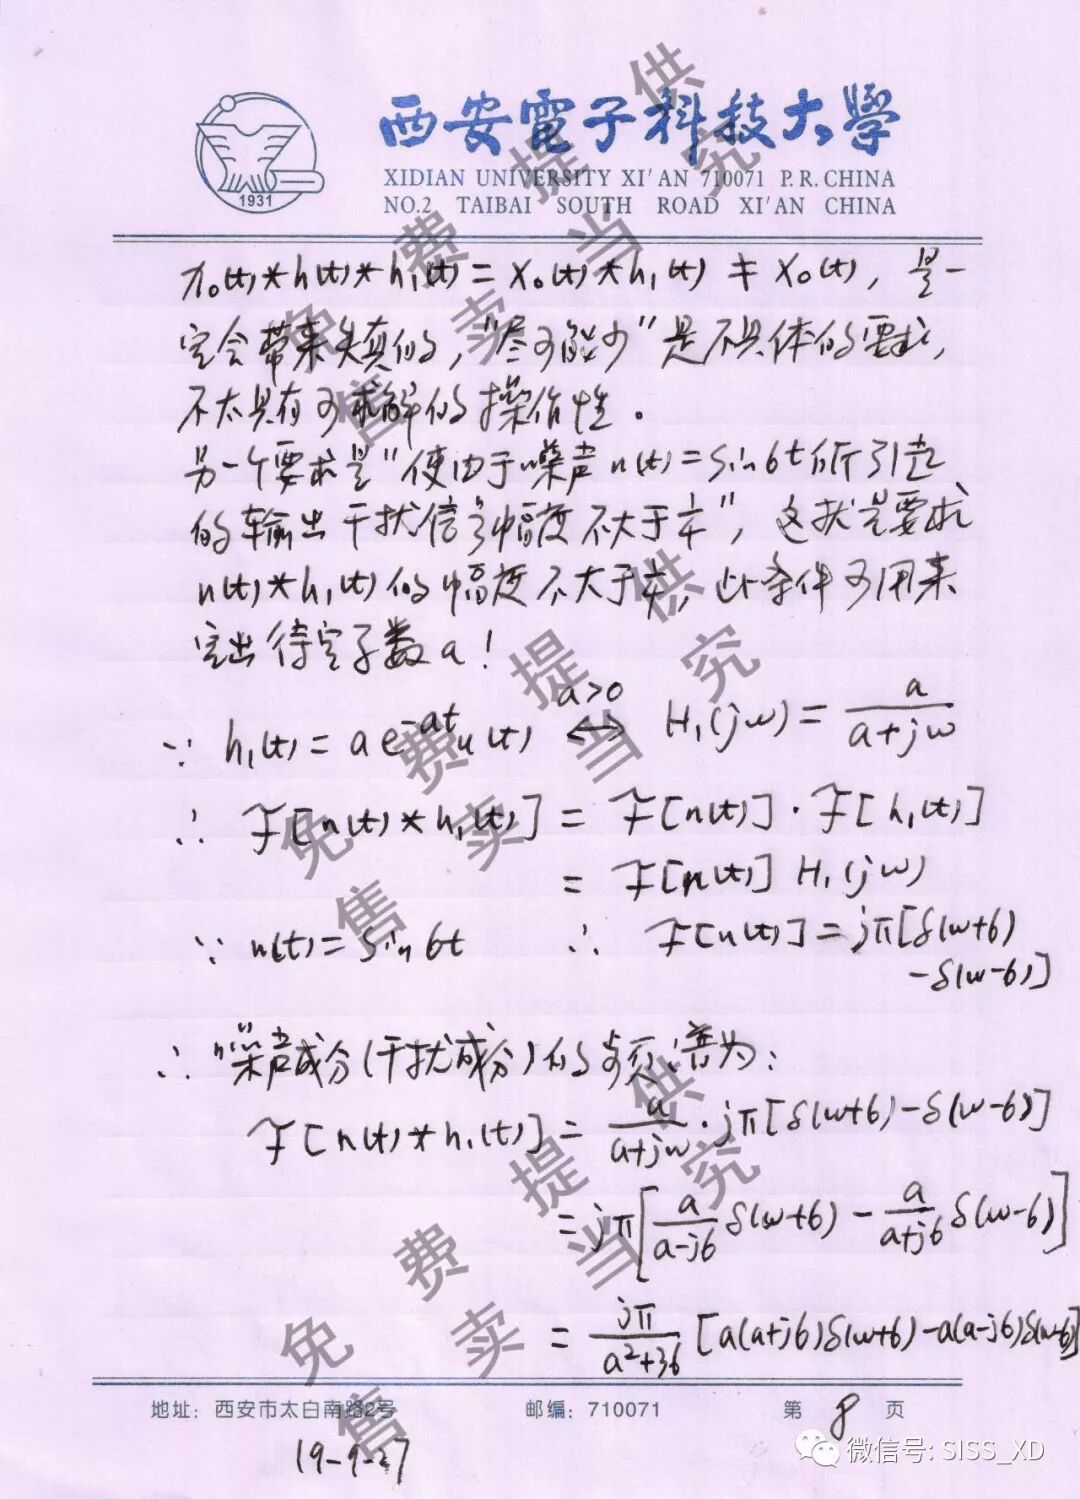 西安電子科技大學
XIDIAN UNIVERSITY XI'AN 710071 P.R.CHINA
NO.2 TAIBAI SOUTH ROAD XI'AN CHINA
1931
x₀(t)*h(t)*h₁(t) = x₀(t)*h₁(t) ≠ x₀(t), 是一
定会带来失真的, "尽可能少" 是不具体的要求,
不太具有可求解的操作性。
另一个要求是"使由于噪声 n(t)=sin6t 所引起
的输出干扰信号幅度不大于
", 这就是要求
n(t)*h₁(t) 的幅度不大于
, 此条件可用来
定出待定子数 a!
∵ h₁(t) = a e^{-at}u(t) ↔ H₁(jω) = a/(a+jω)
a>0
∴ F[n(t)*h₁(t)] = F[n(t)]·F[h₁(t)]
= F[n(t)] H₁(jω)
∵ n(t) = sin6t ∴ F[n(t)] = jπ[δ(ω+6)
-δ(ω-6)]
∴ 噪声成分(干扰成分)的频谱为:
F[n(t)*h₁(t)] = a/(a+jω)·jπ[δ(ω+6)-δ(ω-6)]
= jπ[a/(a-j6) δ(ω+6) - a/(a+j6) δ(ω-6)]
= jπ/(a²+36) [a(a+j6)δ(ω+6)-a(a-j6)δ(ω-6)]
地址: 西安市太白南路2号 邮编: 710071 第 8 页
19-9-27
微信号: SISS_XD
免费提供
售卖当究
免费提供
售卖当究
免费提供
售卖当究